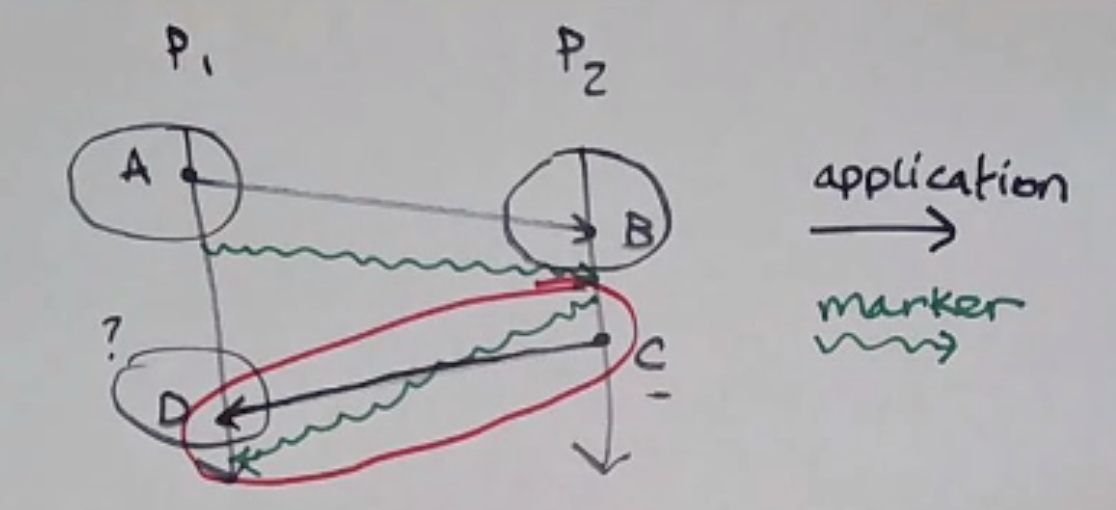 P1 P2
A
B
application
marker
?
D
C